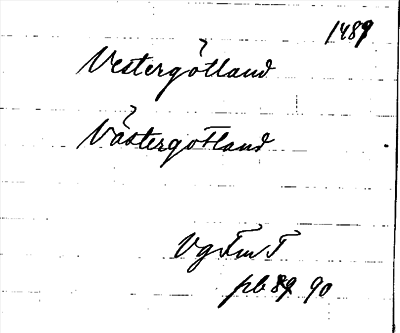 1489
Vestergötland
Västergötland
Vg Fm T
90